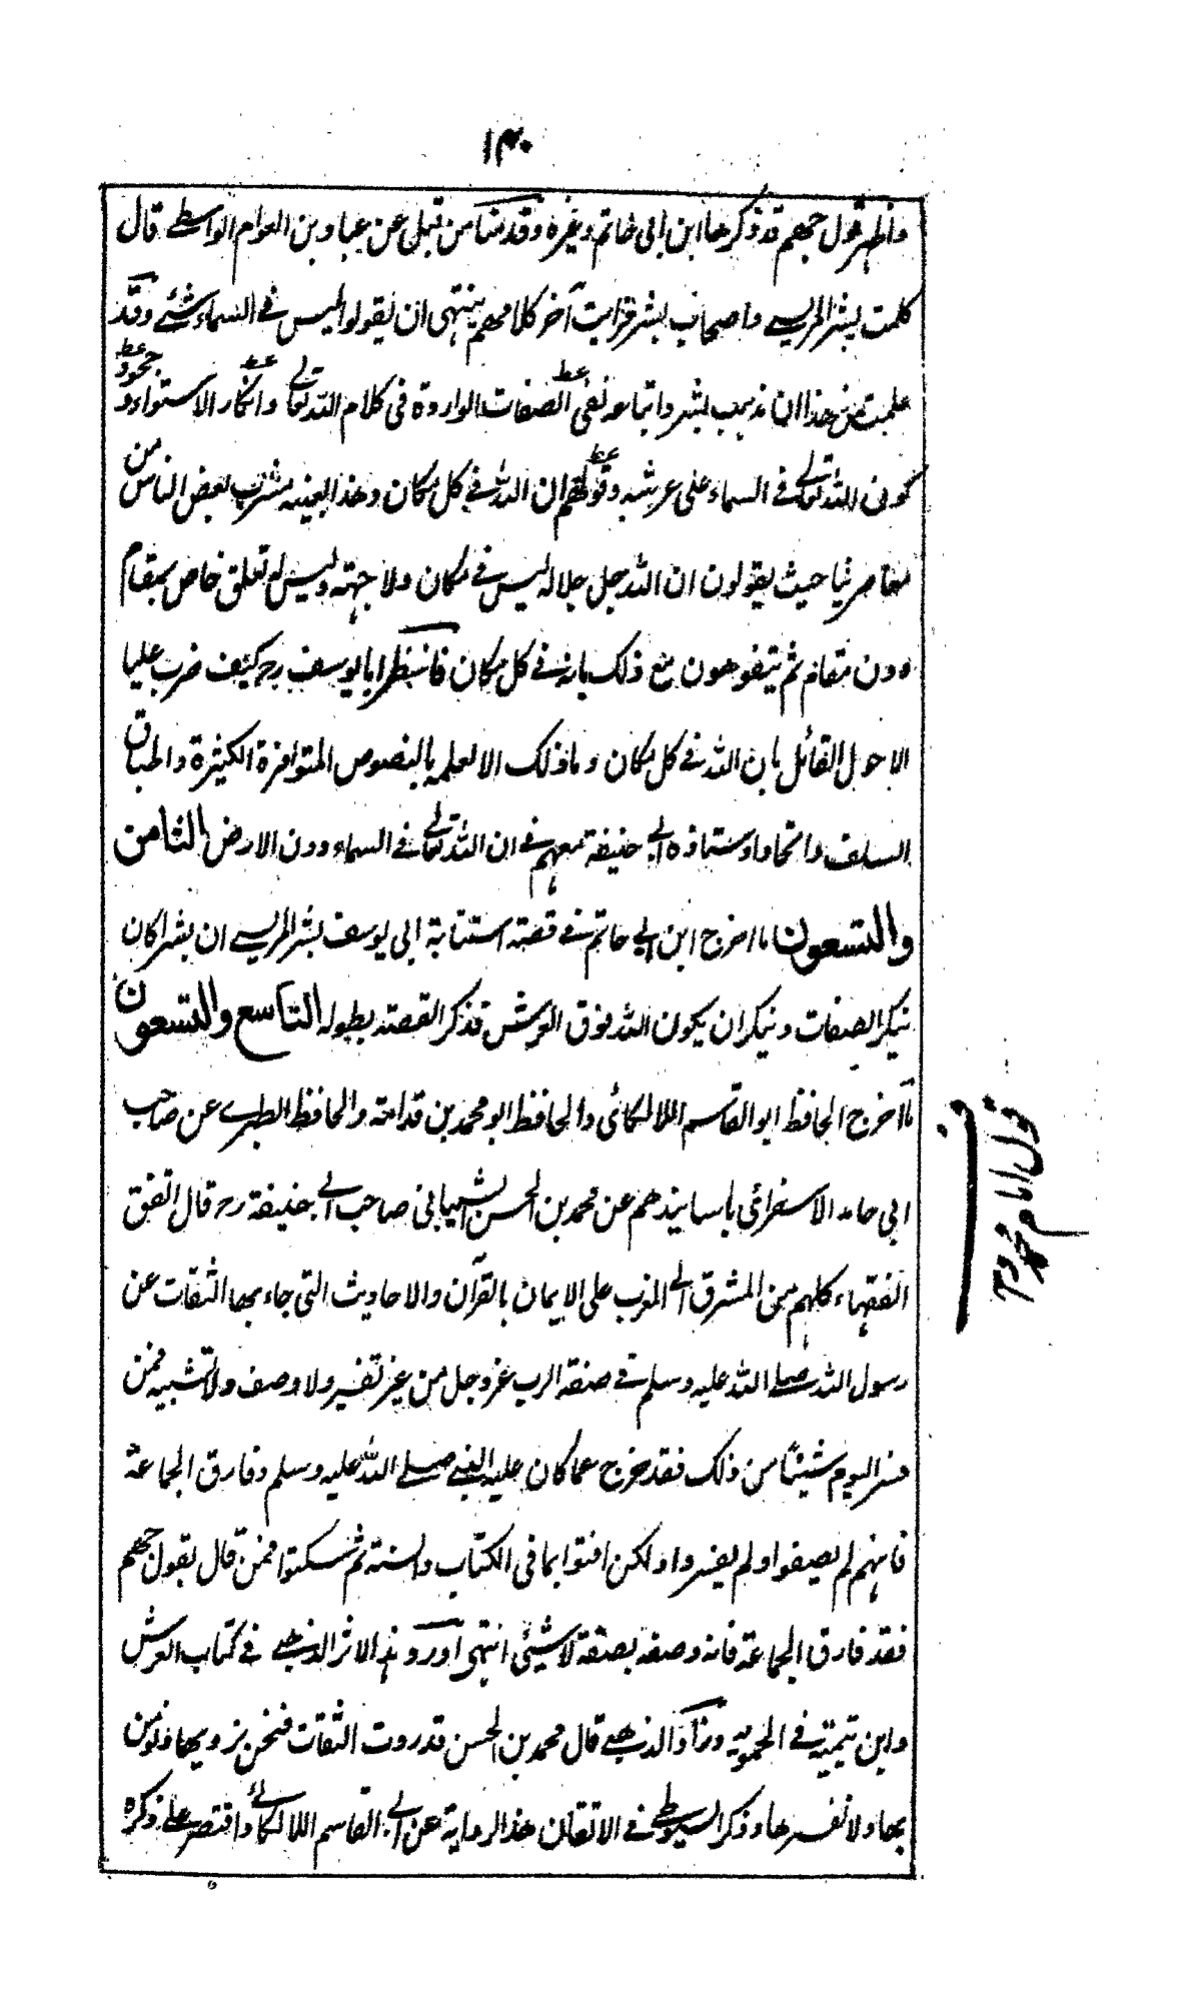 ١٣٠
واظهر قول جهم قد ذكرها ابن ابى حاتم وغيره وقدمنا من قبل عن عباد بن العوام الواسطے قال
كلمت بشر المريسے واصحاب بشر فرايت آخر كلامهم ينتهى ان يقولوا ليس فے السماء شئے وقد
علمت من هذا ان مذهب بشر واتباعه نفى الصفات الواردة فى كلام الله تعالے وانكار الاستواء وجحود
كون الله تعالے فے السماء على عرشه وقولهم ان الله فے كل مكان وهذا بعينه مشرب بعض الناس من
معاصرينا حيث يقولون ان الله جل جلاله ليس فے مكان ولا جهته وليس له تعلق خاص بمقام
دون مقام ثم يتفوهون مع ذلك بانه فے كل مكان فانظر ابا يوسف رح كيف ضرب عليا
الاحول القائل بان الله فے كل مكان وما ذلك الا لعلمه بالنصوص المتوافرة الكثيرة واطباق
السلف واتحاد اوستاذه ابے حنيفة معهم فے ان الله تعالے فے السماء دون الارض الثامن
والتسعون ما اخرج ابن ابے حاتم فے قصته استتابة ابى يوسف بشر المريسے ان بشرا كان
ينكر الصفات وينكر ان يكون الله فوق العرش قد ذكر القصته بطوله التاسع والتسعون
ما اخرج الحافظ ابو القاسم اللالكائى والحافظ ابو محمد بن قدامته والحافظ الطبرے عن صاحب
ابى حامد الاسفرائى باسانيدهم عن محمد بن الحسن الشيبانى صاحب ابے حنيفة رح قال اتفق
الفقهاء كلهم من المشرق الے المغرب على الايمان بالقرآن والاحاديث التى جاء بها الثقات عن
رسول الله صلے الله عليه وسلم فے صفة الرب عز وجل من غير تفسير ولا وصف ولا تشبيه فمن
فسر اليوم شيئاً من ذلك فقد خرج عما كان عليه النبے صلے الله عليه وسلم وفارق الجماعة
فانهم لم يصفوا ولم يفسروا ولكن افتوا بما فى الكتاب والسنة ثم سكتوا فمن قال بقول جهم
فقد فارق الجماعة فانه وصفه بصفة لاشيئ انتهى آورد هذا الاثر الذهبے فے كتاب العرش
وابن تيميته فے الحمويه وزاد الذهبے قال محمد بن الحسن قد روت الثقات فنحن نرويها ونومن
بها ولا نفسرها وذكر السيوطے فے الاتقان هذه الرواية عن ابے القاسم اللالكائے واقتصر علے ذكره
قول امام محمد رح